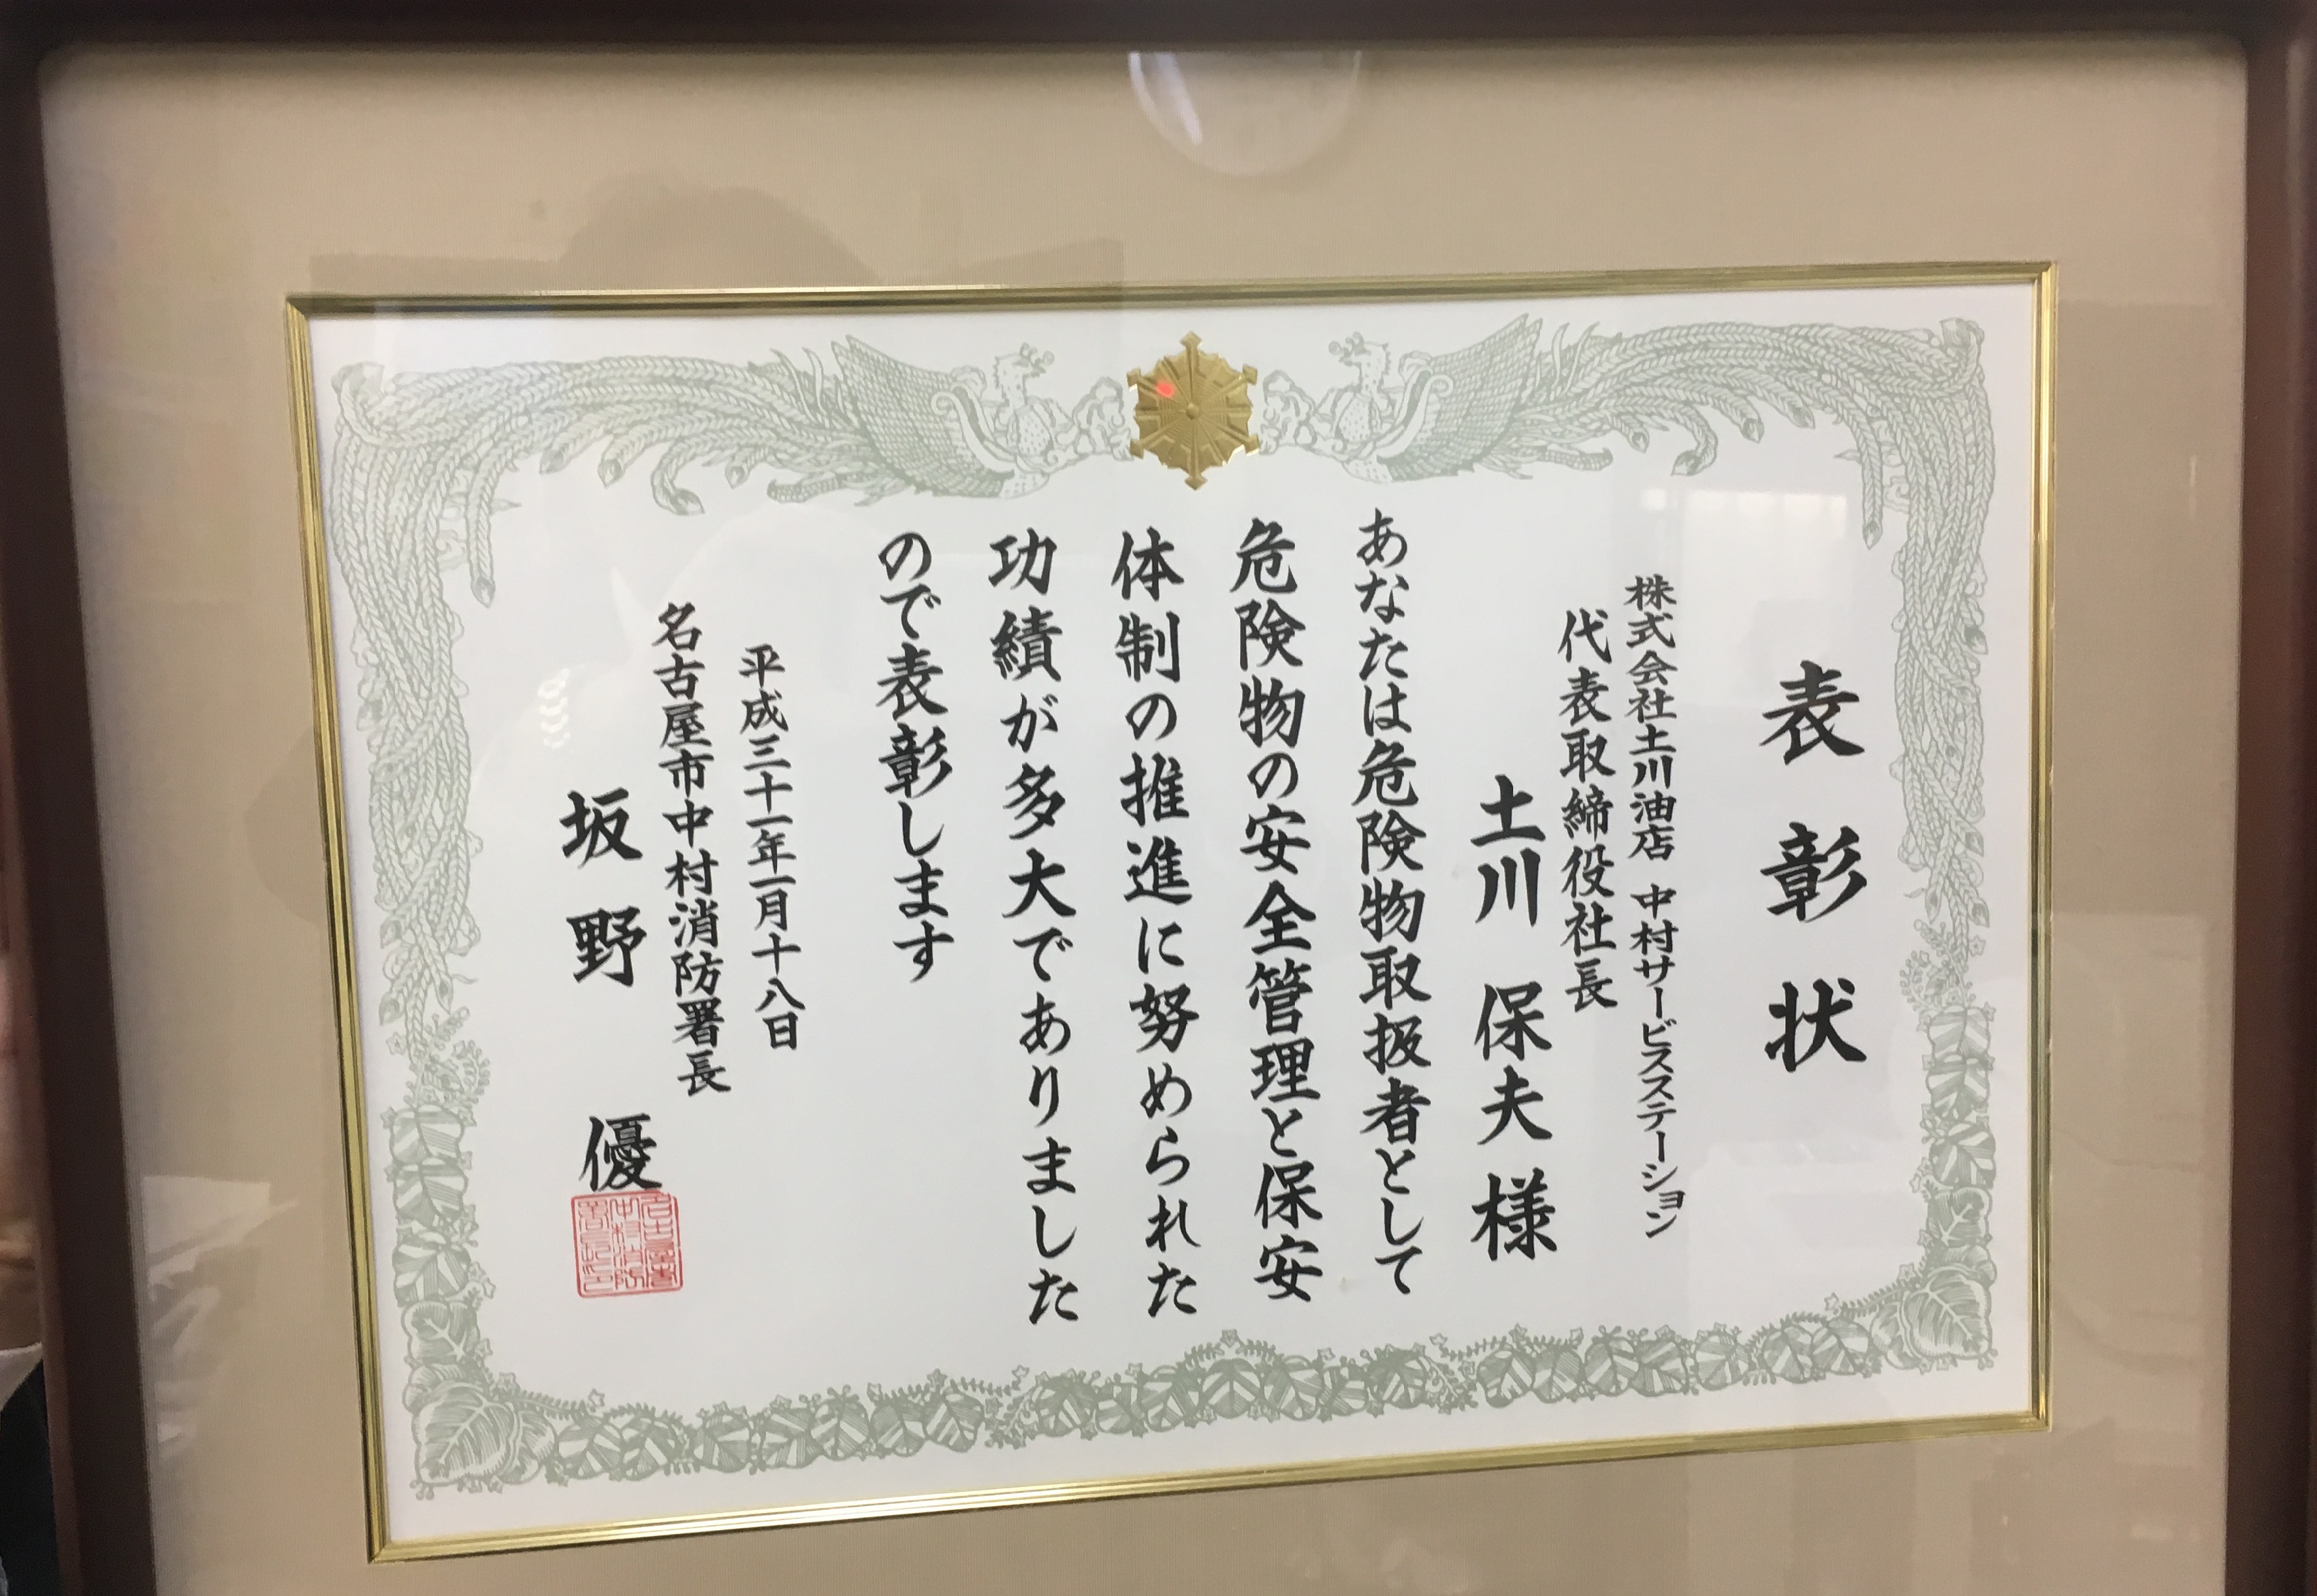 表彰状
株式会社土川油店 中村サービスステーション
代表取締役社長
土川 保夫 様
あなたは危険物取扱者として
危険物の安全管理と保安
体制の推進に努められた
功績が多大でありました
ので表彰します
平成三十一年一月十八日
名古屋市中村消防署長
坂野 優